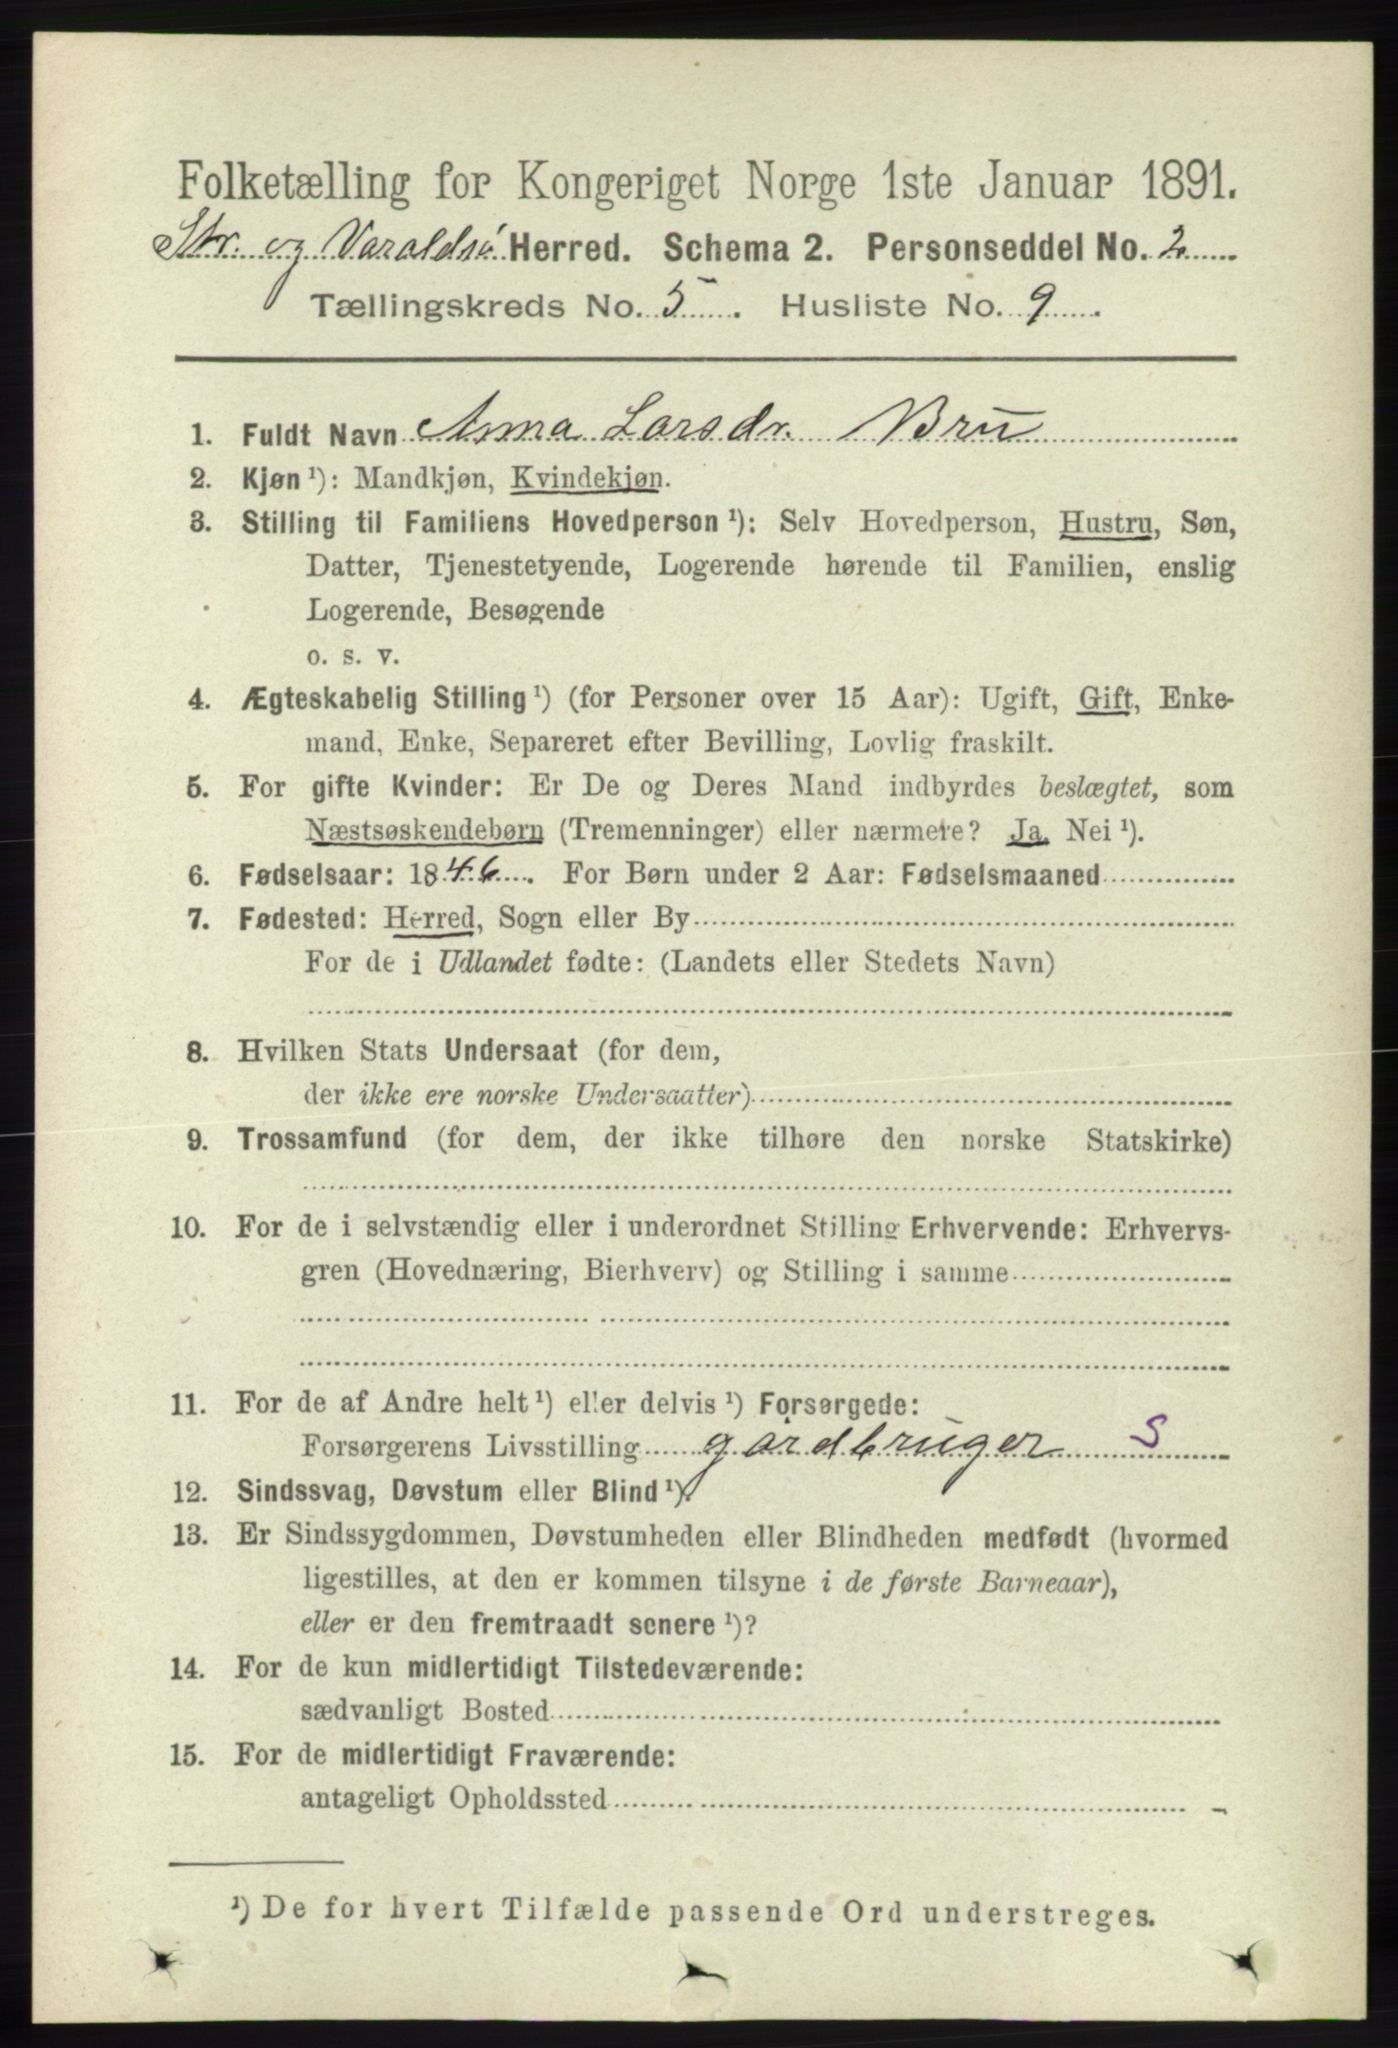 Folketælling for Kongeriget Norge 1ste Januar 1891.
Str. og Varaldsø Herred. Schema 2. Personseddel No. 2
Tællingskreds No. 5. Husliste No. 9.
1. Fuldt Navn Anna Larsdr. Bru
2. Kjøn ¹): Mandkjøn, Kvindekjøn.
3. Stilling til Familiens Hovedperson ¹): Selv Hovedperson, Hustru, Søn,
Datter, Tjenestetyende, Logerende hørende til Familien, enslig
Logerende, Besøgende
o. s. v.
4. Ægteskabelig Stilling ¹) (for Personer over 15 Aar): Ugift, Gift, Enke-
mand, Enke, Separeret efter Bevilling, Lovlig fraskilt.
5. For gifte Kvinder: Er De og Deres Mand indbyrdes beslægtet, som
Næstsøskendebørn (Tremenninger) eller nærmere? Ja. Nei ¹).
6. Fødselsaar: 1846. For Børn under 2 Aar: Fødselsmaaned
7. Fødested: Herred, Sogn eller By
For de i Udlandet fødte: (Landets eller Stedets Navn)
8. Hvilken Stats Undersaat (for dem,
der ikke ere norske Undersaatter)
9. Trossamfund (for dem, der ikke tilhøre den norske Statskirke)
10. For de i selvstændig eller i underordnet Stilling Erhvervende: Erhvervs-
gren (Hovednæring, Bierhverv) og Stilling i samme
11. For de af Andre helt ¹) eller delvis ¹) Forsørgede:
Forsørgerens Livsstilling gårdbruger S
12. Sindssvag, Døvstum eller Blind ¹).
13. Er Sindssygdommen, Døvstumheden eller Blindheden medfødt (hvormed
ligestilles, at den er kommen tilsyne i de første Barneaar),
eller er den fremtraadt senere ¹)?
14. For de kun midlertidigt Tilstedeværende:
sædvanligt Bosted
15. For de midlertidigt Fraværende:
antageligt Opholdssted
¹) De for hvert Tilfælde passende Ord understreges.